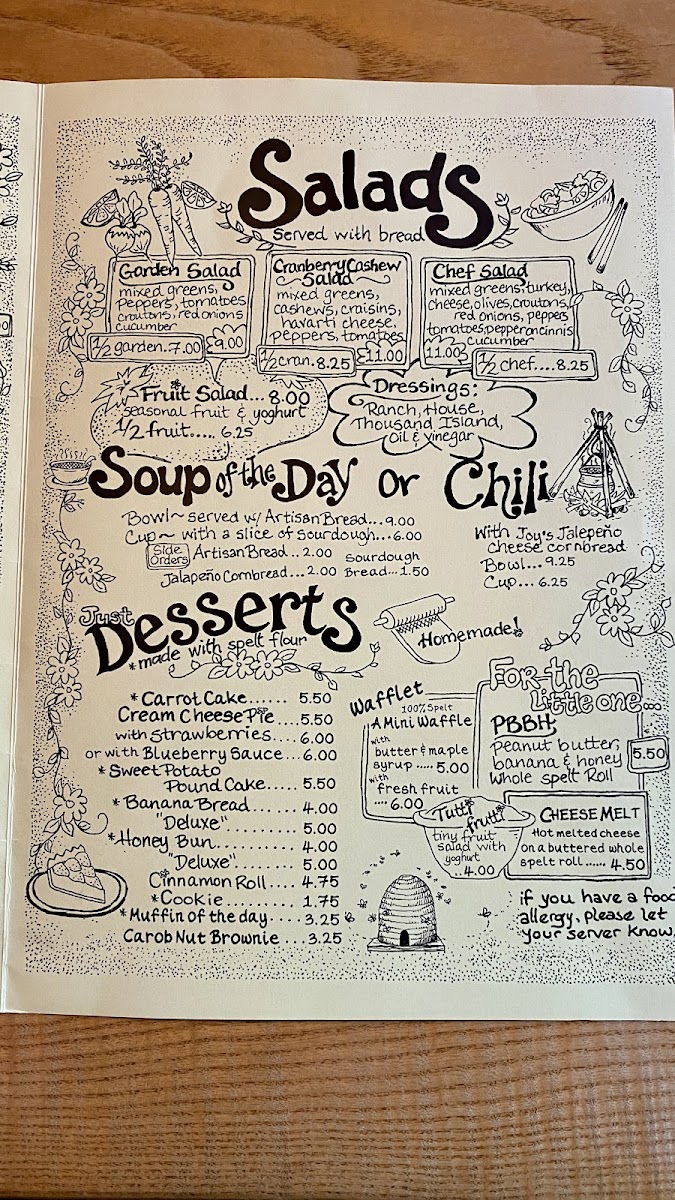 Salads
Served with bread
Garden Salad
mixed greens,
peppers, tomatoes
croutons, red onions
cucumber
9.00
1/2 garden.7.00
Cranberry Cashew
Salad
mixed greens,
cashews, craisins,
havarti cheese,
peppers, tomatoes
11.00
1/2 cran.8.25
Chef Salad
mixed greens, turkey,
cheese, olives, croutons,
red onions, peppers
tomatoes, pepperoncinnis
cucumber
11.00
1/2 chef....8.25
Fruit Salad...8.00
seasonal fruit & yoghurt
1/2 fruit..... 6.25
Dressings:
Ranch, House,
Thousand Island,
Oil & vinegar
Soup of the Day or Chili
Bowl~ served w/ Artisan Bread...9.00
Cup~ with a slice of sourdough...6.00
Side Orders
Artisan Bread...2.00
Jalapeño Cornbread...2.00
Sourdough
Bread...1.50
With Joy's Jalepeño
cheese cornbread
Bowl...9.25
Cup... 6.25
Just
Desserts
*made with spelt flour
Homemade!
*Carrot Cake...... 5.50
Cream Cheese Pie....5.50
with strawberries.... 6.00
or with Blueberry Sauce...6.00
*Sweet Potato
Pound Cake..... 5.50
*Banana Bread...... 4.00
"Deluxe"......... 5.00
*Honey Bun......... 4.00
"Deluxe"......... 5.00
Cinnamon Roll.... 4.75
*Cookie......... 1.75
*Muffin of the day.... 3.25
Carob Nut Brownie ... 3.25
Wafflet
100% Spelt
A Mini Waffle
with
butter & maple
syrup ..... 5.00
with
fresh fruit
.... 6.00
Tutti
frutti
tiny fruit
salad with
yoghurt
...4.00
For the
little one...
PBBH
peanut butter,
banana & honey
whole spelt Roll
5.50
CHEESE MELT
Hot melted cheese
on a buttered whole
spelt roll ...... 4.50
if you have a food
allergy, please let
your server know.